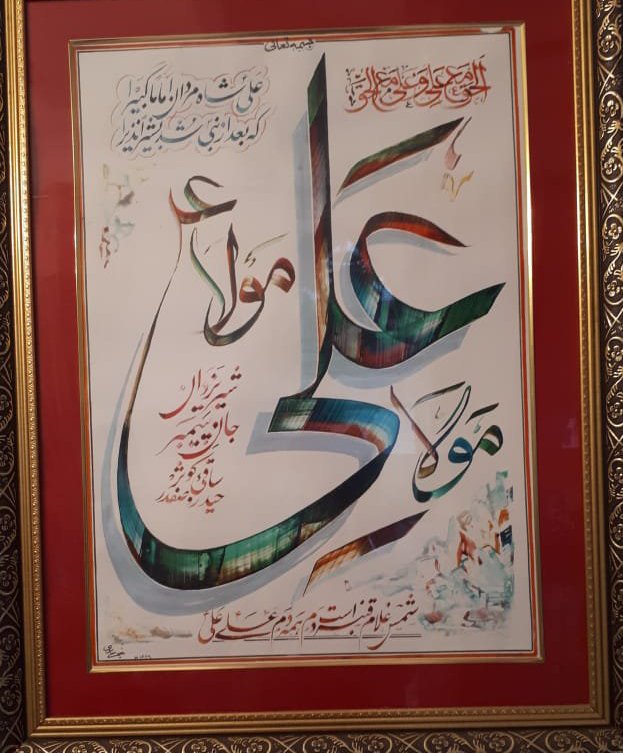 بسمه تعالی
الحق مع علی و علی مع الحق
علی شاه مردان اماما کبیرا
که بعد از نبی شد بشیرا نذیرا
علی
مولا
مولا
شیر یزدان
جان پیمبر
ساقی کوثر
حیدر صفدر
شمس غلام قنبرت دم همه دم علی علی